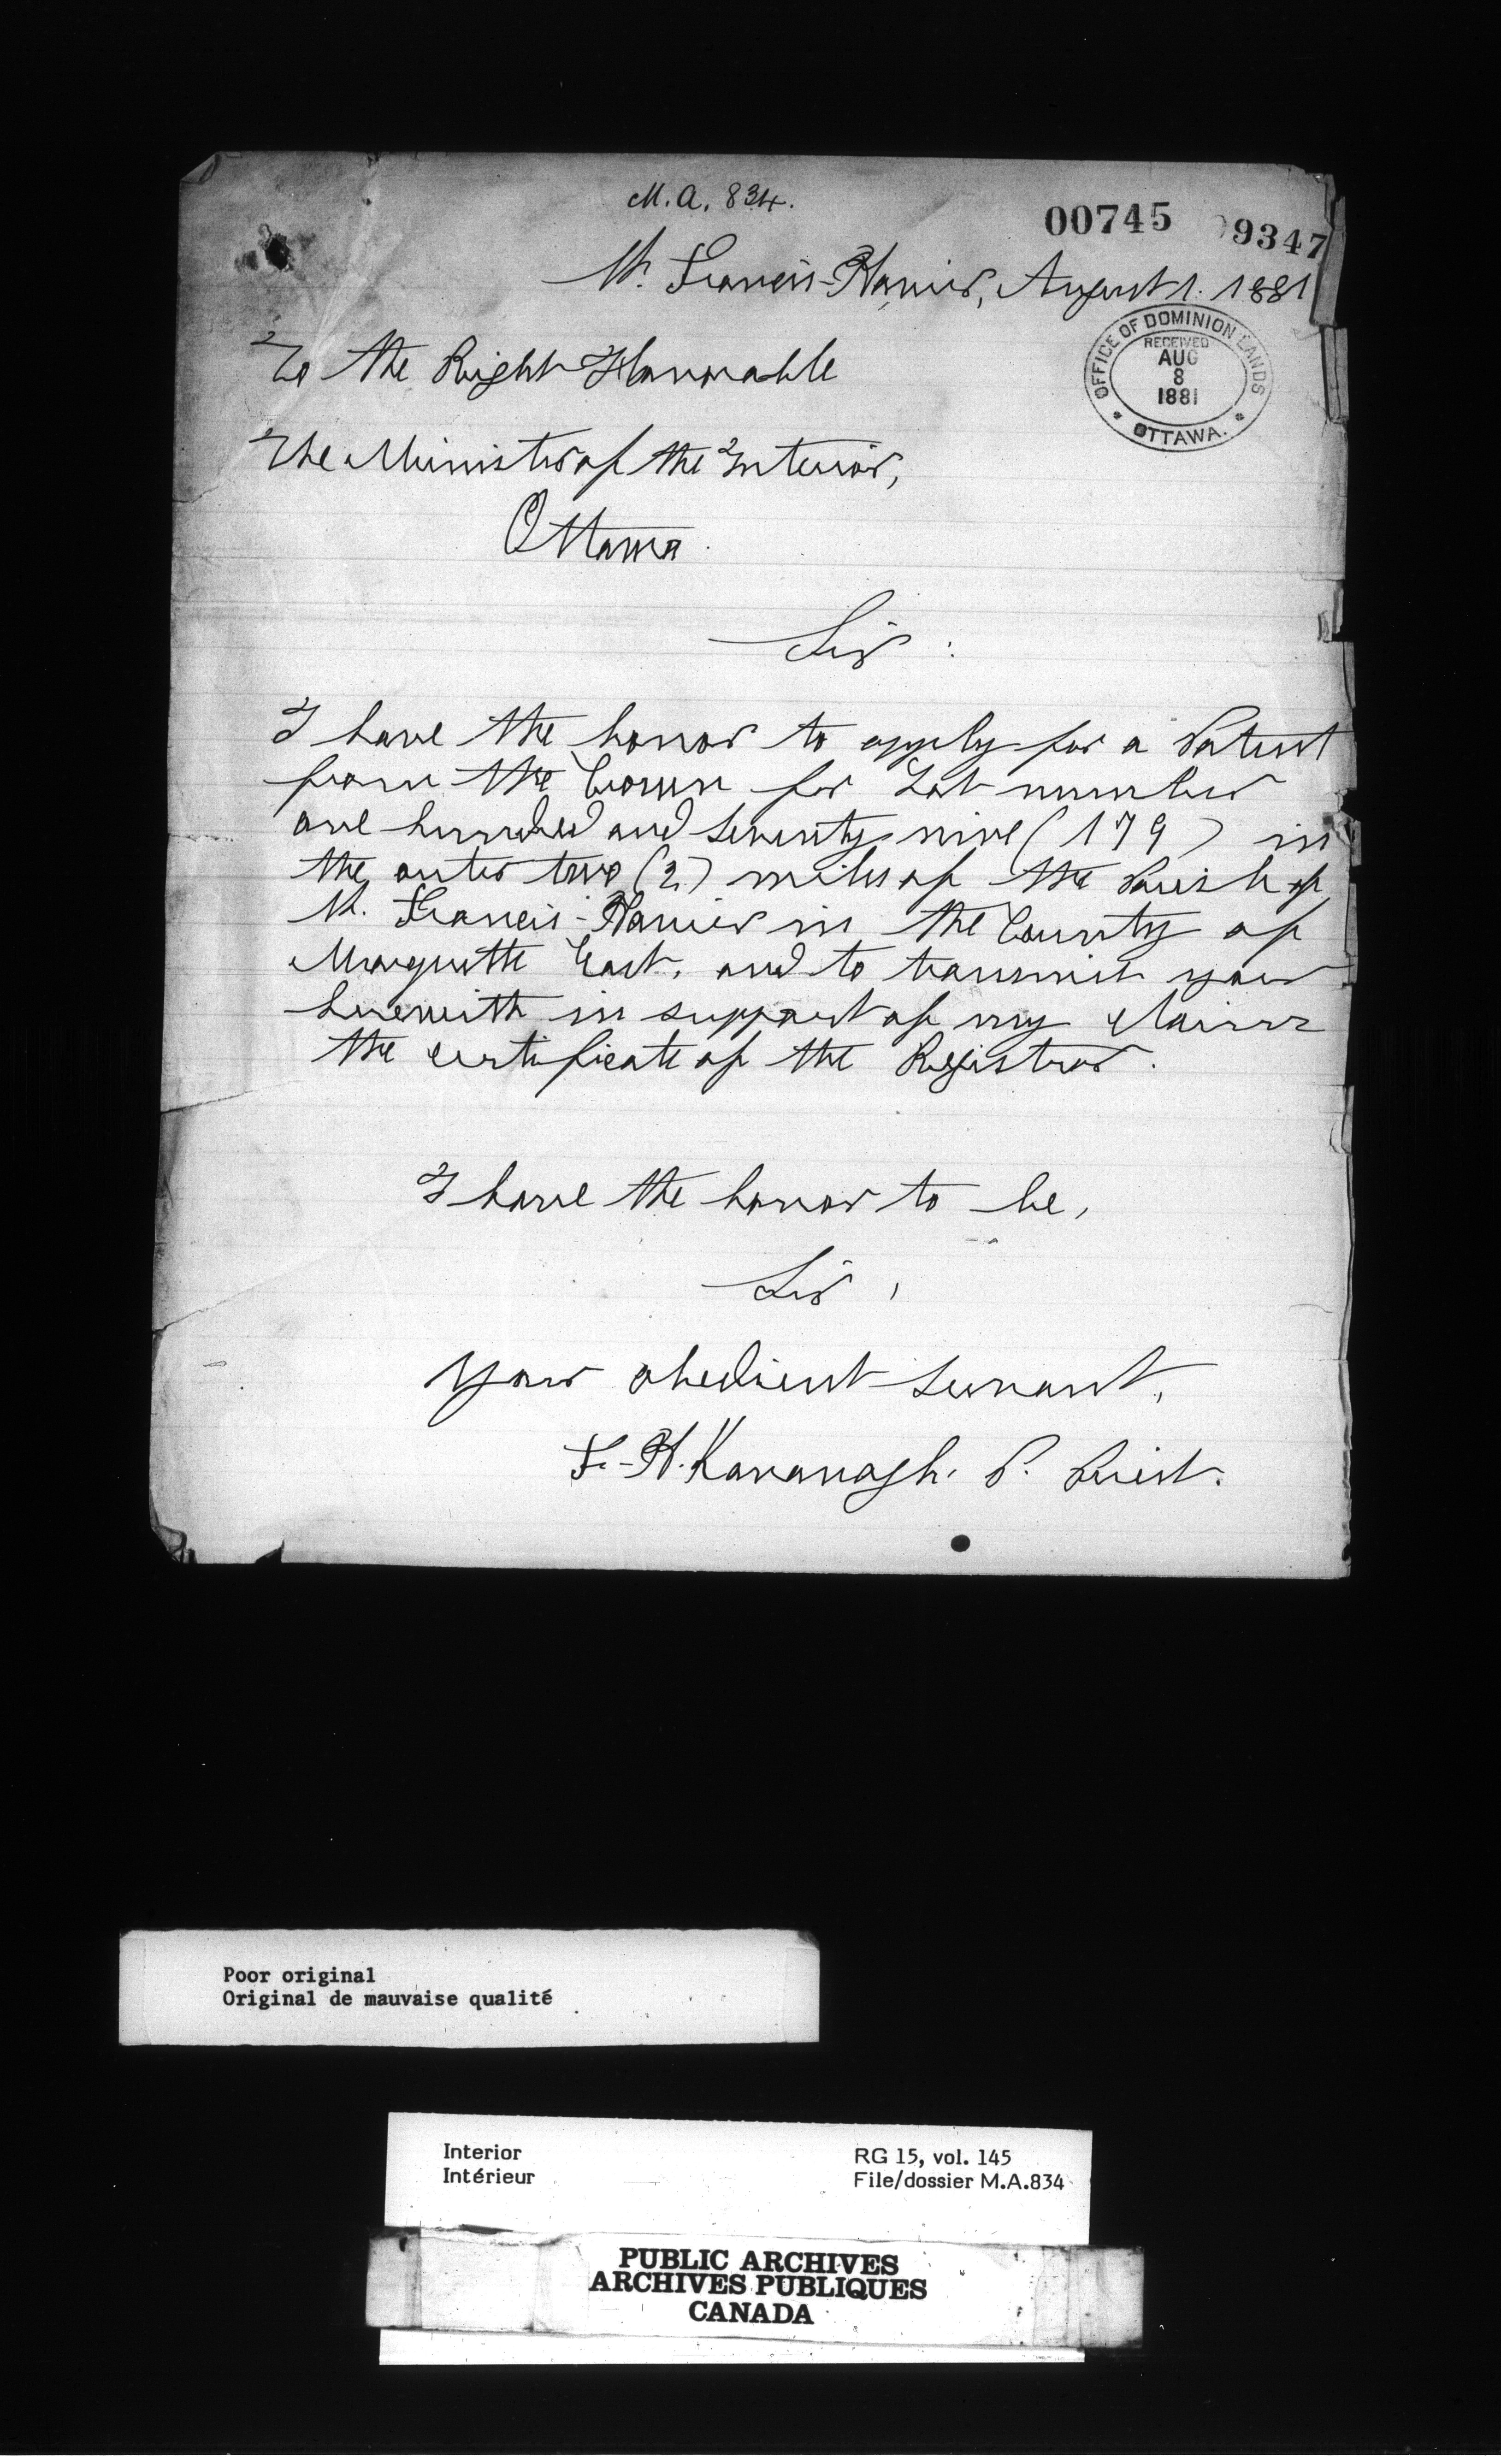 M.A. 834.
00745 9347
St. Francis-Xavier, August 1. 1881
OFFICE OF DOMINION LANDS
RECEIVED
AUG
8
1881
OTTAWA.
To the Right Honorable
The Minister of the Interior,
Ottawa.
Sir :
I have the honor to apply for a Patent
from the Crown for Lot number
one hundred and seventy nine (179) in
the outer two (2) miles of the Parish of
St. Francis-Xavier in the County of
Marquette East, and to transmit you
herewith in support of my claim
the certificate of the Registrar.
I have the honor to be,
Sir,
your obedient servant,
F.-X. Kavanagh. P. Priest.
Poor original
Original de mauvaise qualité
Interior RG 15, vol. 145
Intérieur File/dossier M.A.834
PUBLIC ARCHIVES
ARCHIVES PUBLIQUES
CANADA